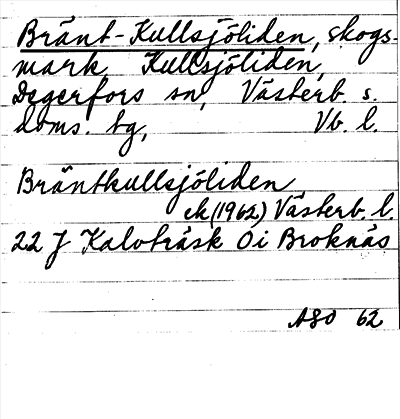 Bränt-Kullsjöliden, skogs-
mark, Kullsjöliden,
Degerfors sn, Västerb. s.
doms. tg, Vb. l.
Bräntkullsjöliden
ek (1962) Västerb. l.
22 J Kalvträsk 0i Broknäs
ASO 62